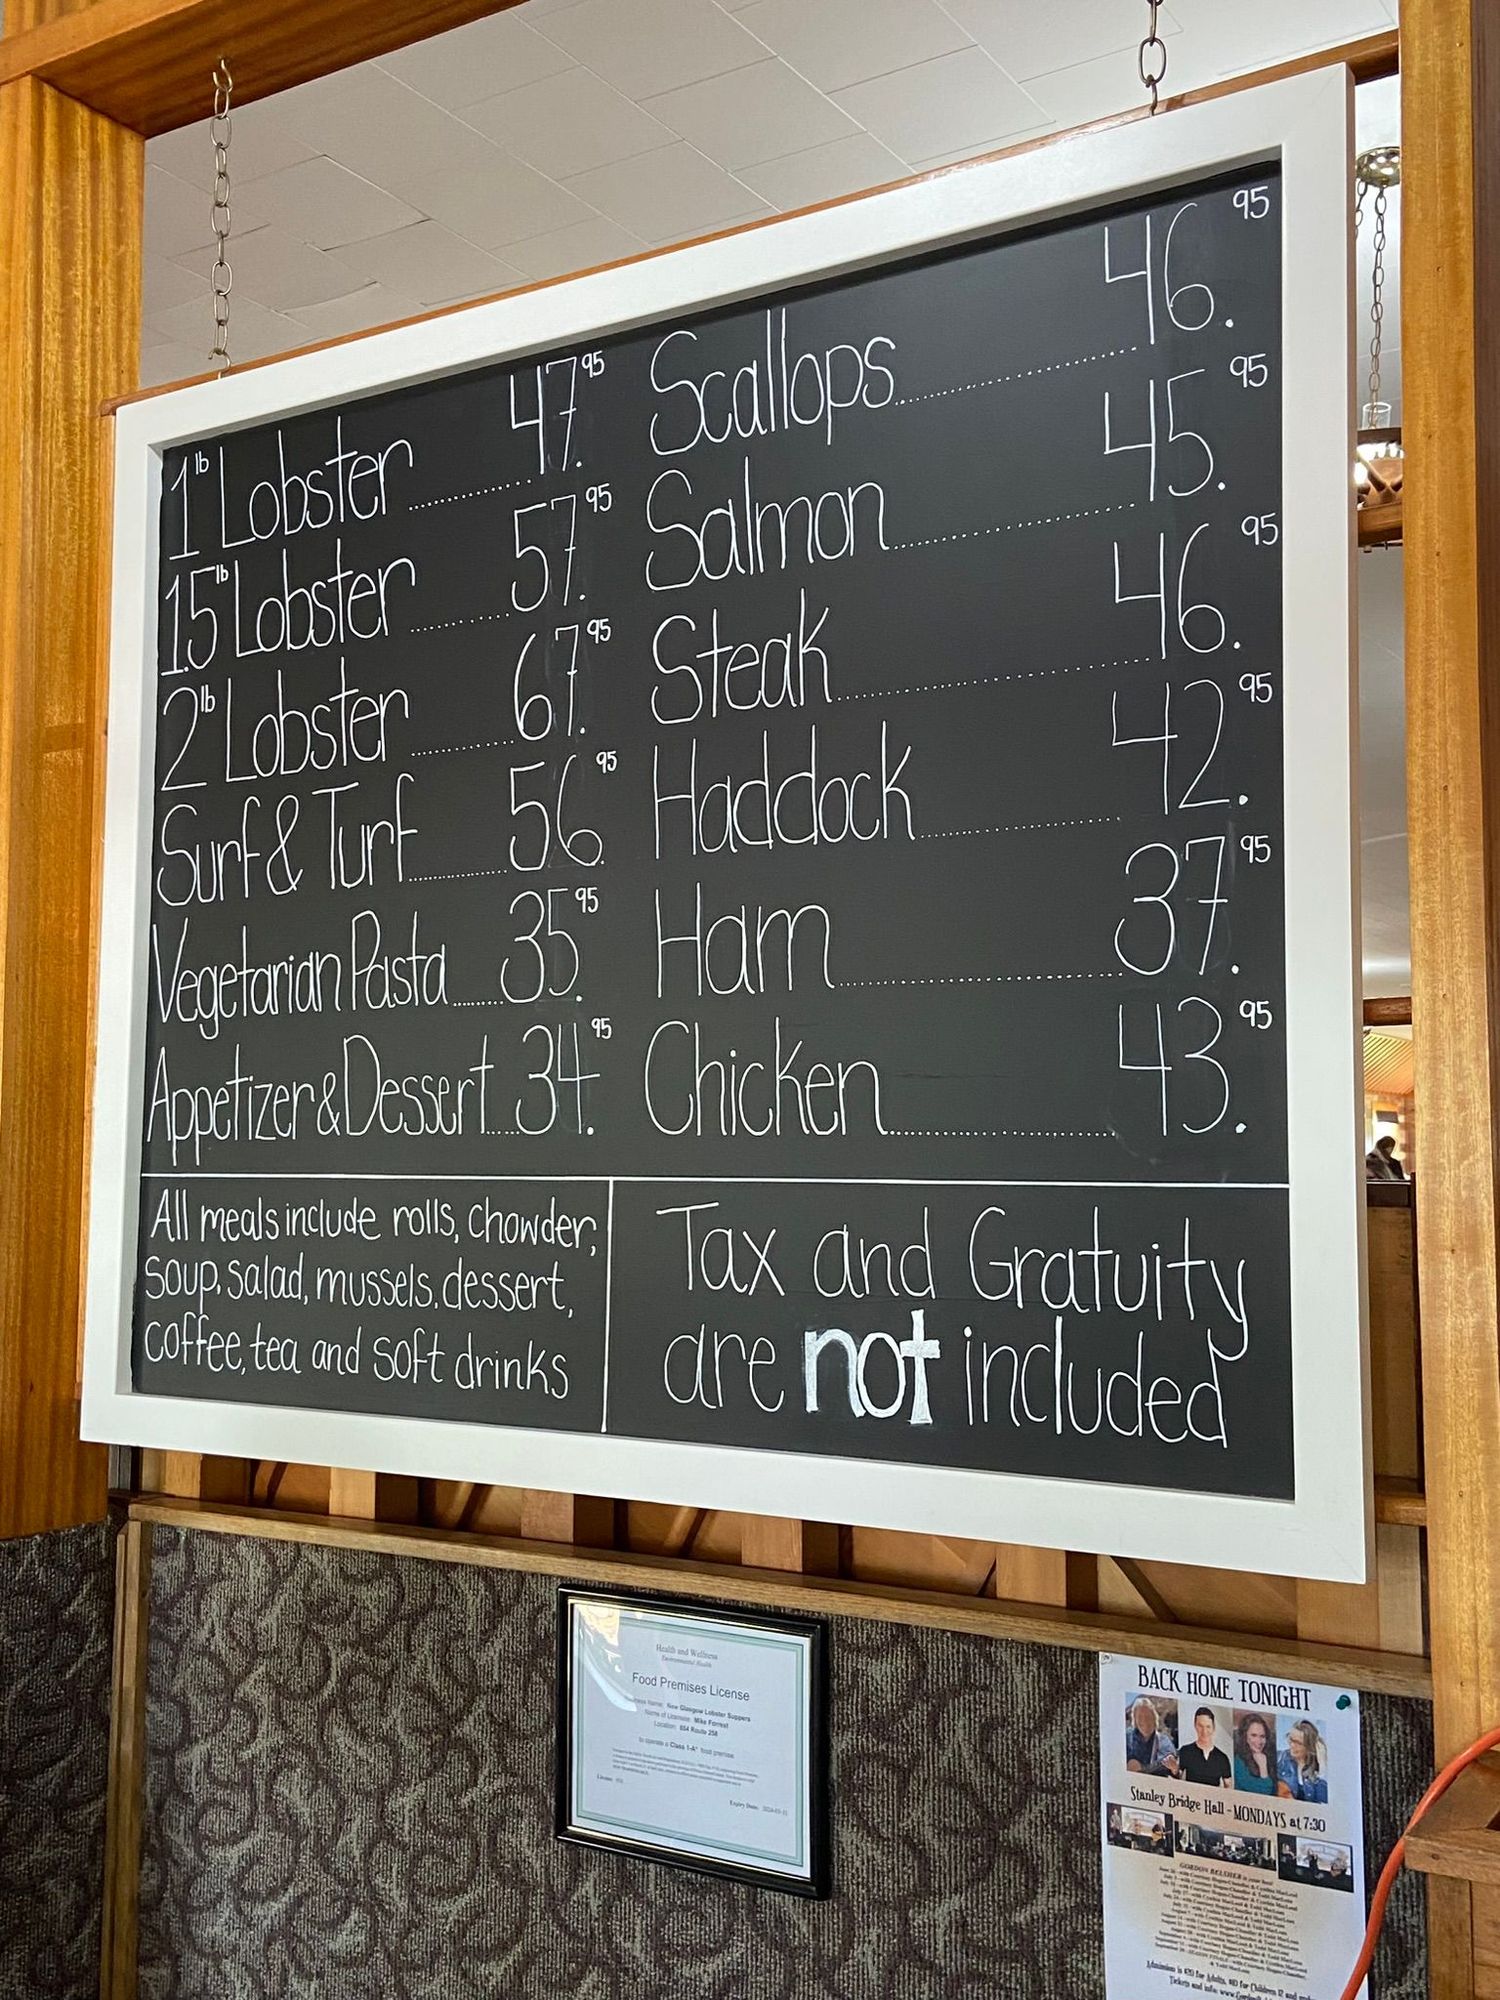 1 lb Lobster ........ 47.95
1.5 lb Lobster ........ 57.95
2 lb Lobster ........ 67.95
Surf & Turf ........ 56.95
Vegetarian Pasta ........ 35.95
Appetizer & Dessert ..... 34.95
Scallops ........ 46.95
Salmon ........ 45.95
Steak ........ 46.95
Haddock ........ 42.95
Ham ........ 37.95
Chicken ........ 43.95
All meals include rolls, chowder,
soup, salad, mussels, dessert,
coffee, tea and soft drinks
Tax and Gratuity
are not included
Health and Wellness
Environmental Health
Food Premises License
Business Name: New Glasgow Lobster Suppers
Name of Licensee: Mike Forrest
Location: 604 Route 258
to operate a Class 1-A* food premise
Expiry Date:
BACK HOME TONIGHT
Stanley Bridge Hall - MONDAYS at 7:30
GORDON BELSHER
Admission is $20 for Adults, $10 for Children 12 and
Tickets and info: www.